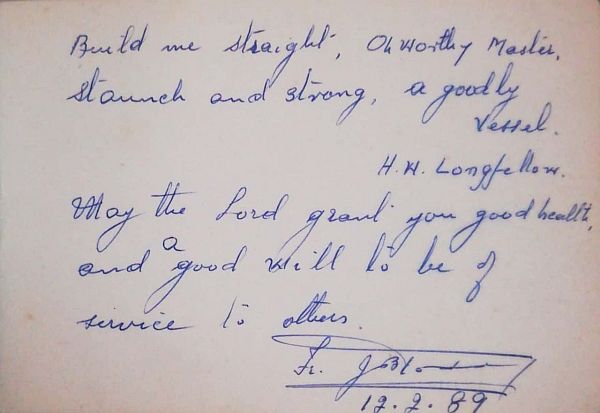 Build me straight, Oh worthy Master,
Staunch and strong, a goodly
vessel.
H.W. Longfellow.
May the Lord grant you good health,
and a good will to be of
service to others.
Fr.
12.2.89